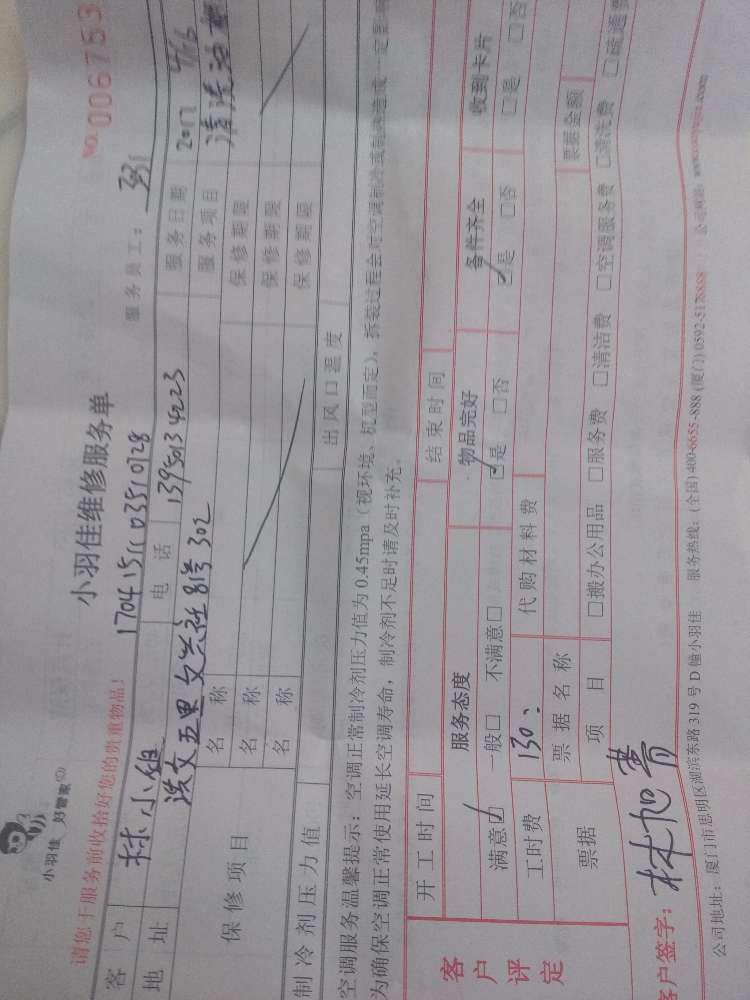 小羽佳 好管家
小羽佳维修服务单
NO: 006753
请您于服务前收拾好您的贵重物品!
服务员工:
客户 林小姐 电话 服务日期 2017
地址 服务项目 清洗油烟
保修项目 名称 保修期限
名称 保修期限
名称 保修期限
制冷剂压力值 出风口温度
空调服务温馨提示: 空调正常制冷剂压力值为0.45mpa(视环境、机型而定), 拆装过程会对空调制冷或制热造成一定影响
为确保空调正常使用延长空调寿命, 制冷剂不足时请及时补充。
开工时间 结束时间
客户评定
服务态度 物品完好 备件齐全 收到卡片
满意☑ 一般□ 不满意□ ☑是 □否 ☑是 □否 □是 □否
工时费 130 代购材料费
票据 票据名称 票据金额
项目 □搬办公用品 □服务费 □清洁费 □空调服务费 □清洗费 □疏通费
客户签字:
公司地址: 厦门市思明区湖滨东路319号D幢小羽佳 服务热线: (全国)400-6655-888 (厦门)0592-5178888 公司网址: